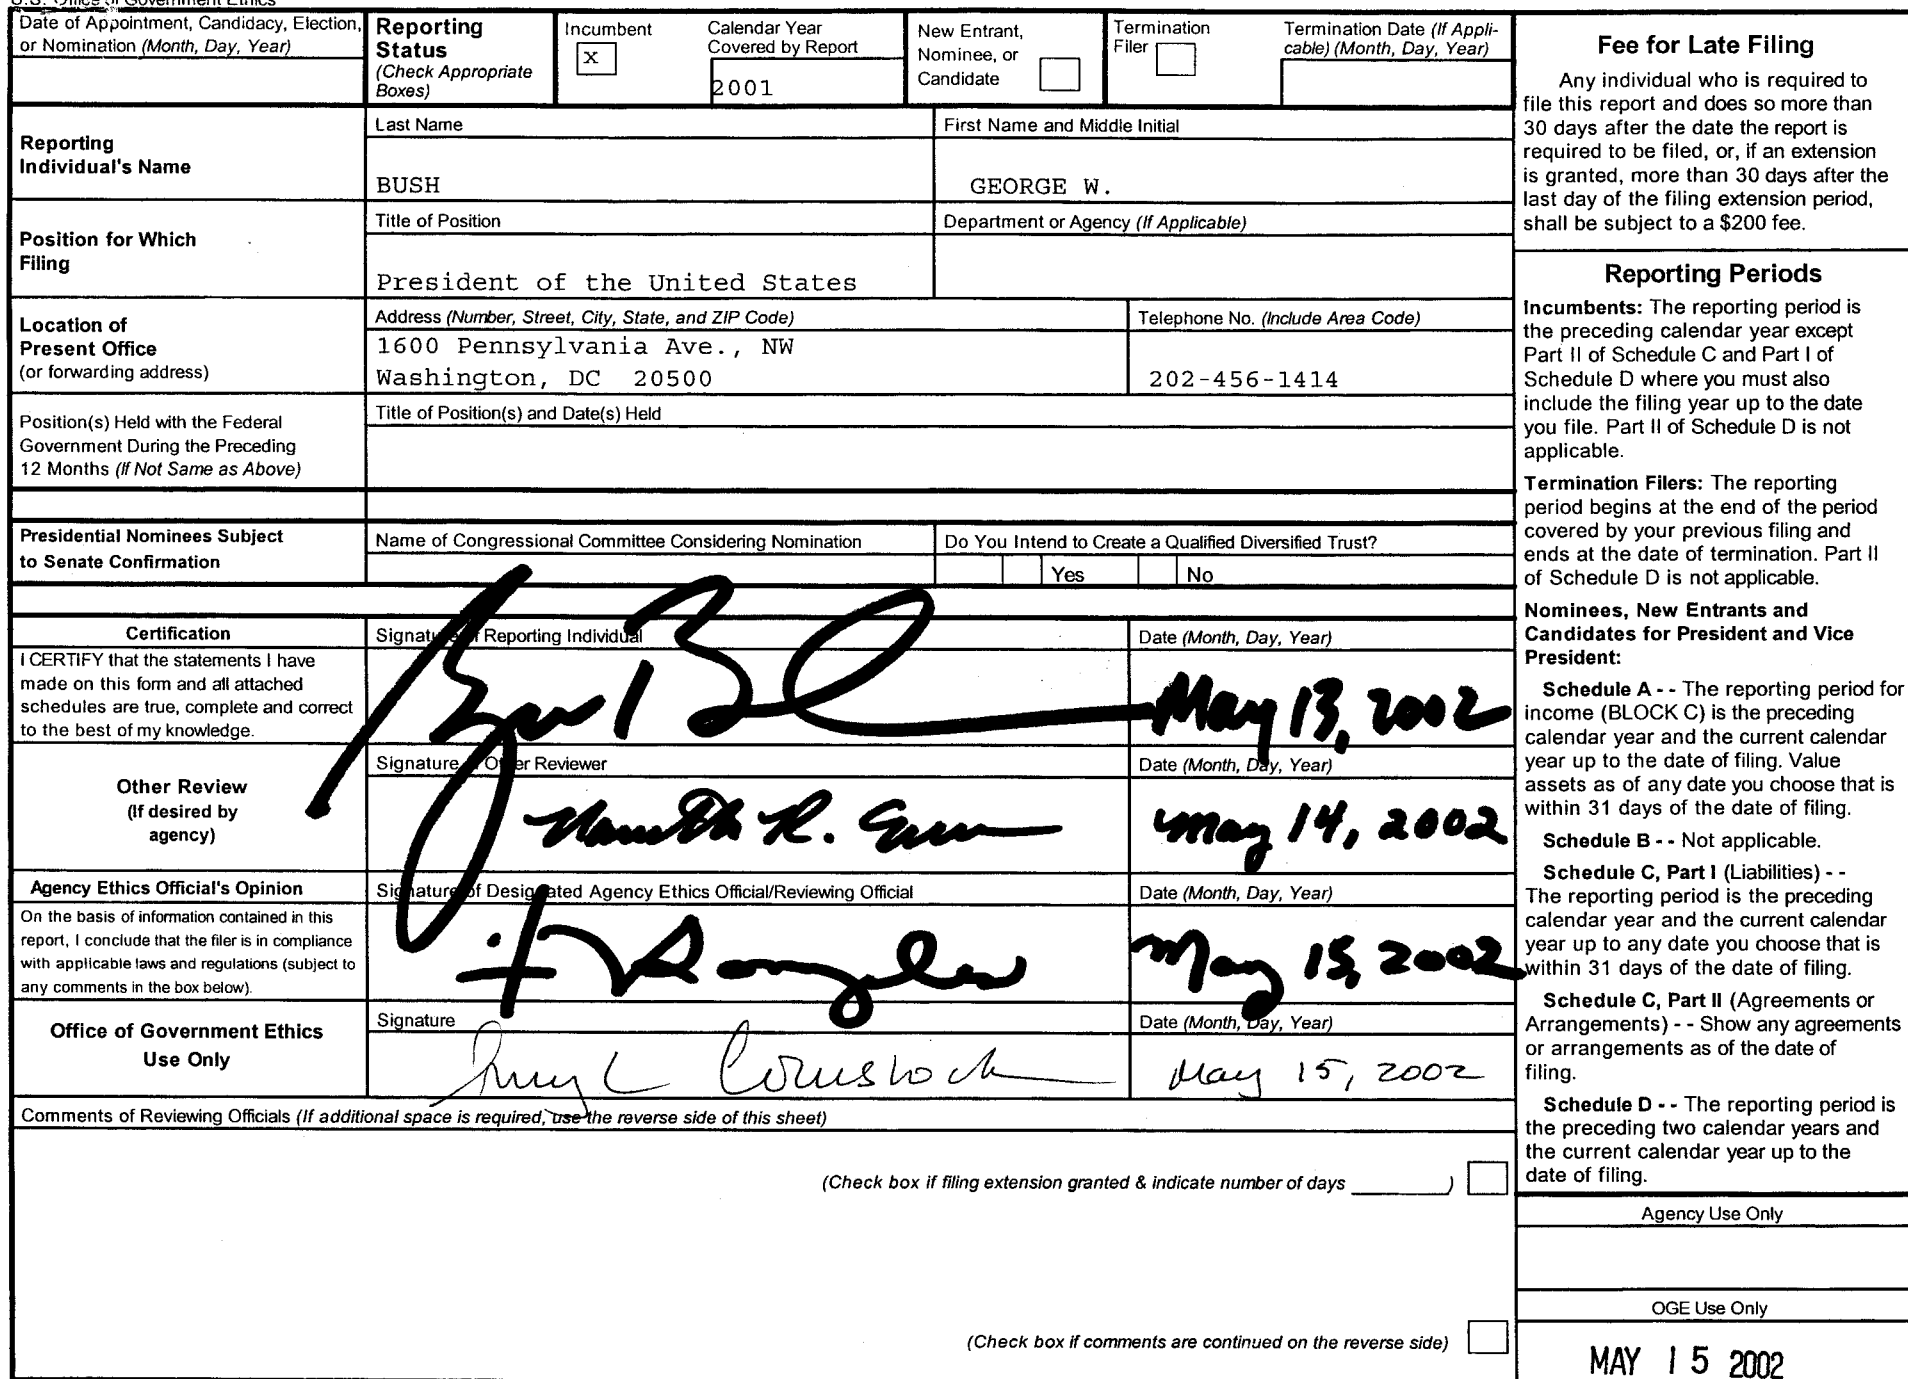 U.S. Office of Government Ethics
Date of Appointment, Candidacy, Election,
or Nomination (Month, Day, Year)
Reporting
Status
(Check Appropriate
Boxes)
Incumbent
x
Calendar Year
Covered by Report
2001
New Entrant,
Nominee, or
Candidate
Termination
Filer
Termination Date (If Appli-
cable) (Month, Day, Year)
Reporting
Individual's Name
Last Name
BUSH
First Name and Middle Initial
GEORGE W.
Position for Which
Filing
Title of Position
President of the United States
Department or Agency (If Applicable)
Location of
Present Office
(or forwarding address)
Address (Number, Street, City, State, and ZIP Code)
1600 Pennsylvania Ave., NW
Washington, DC 20500
Telephone No. (Include Area Code)
202-456-1414
Position(s) Held with the Federal
Government During the Preceding
12 Months (If Not Same as Above)
Title of Position(s) and Date(s) Held
Presidential Nominees Subject
to Senate Confirmation
Name of Congressional Committee Considering Nomination
Do You Intend to Create a Qualified Diversified Trust?
Yes
No
Certification
I CERTIFY that the statements I have
made on this form and all attached
schedules are true, complete and correct
to the best of my knowledge.
Signature of Reporting Individual
Date (Month, Day, Year)
May 13, 2002
Other Review
(If desired by
agency)
Signature of Other Reviewer
Date (Month, Day, Year)
May 14, 2002
Agency Ethics Official's Opinion
On the basis of information contained in this
report, I conclude that the filer is in compliance
with applicable laws and regulations (subject to
any comments in the box below).
Signature of Designated Agency Ethics Official/Reviewing Official
Date (Month, Day, Year)
May 15, 2002
Office of Government Ethics
Use Only
Signature
Comstock
Date (Month, Day, Year)
May 15, 2002
Comments of Reviewing Officials (If additional space is required, use the reverse side of this sheet)
(Check box if filing extension granted & indicate number of days ________)
(Check box if comments are continued on the reverse side)
Fee for Late Filing
Any individual who is required to
file this report and does so more than
30 days after the date the report is
required to be filed, or, if an extension
is granted, more than 30 days after the
last day of the filing extension period,
shall be subject to a $200 fee.
Reporting Periods
Incumbents: The reporting period is
the preceding calendar year except
Part II of Schedule C and Part I of
Schedule D where you must also
include the filing year up to the date
you file. Part II of Schedule D is not
applicable.
Termination Filers: The reporting
period begins at the end of the period
covered by your previous filing and
ends at the date of termination. Part II
of Schedule D is not applicable.
Nominees, New Entrants and
Candidates for President and Vice
President:
Schedule A - - The reporting period for
income (BLOCK C) is the preceding
calendar year and the current calendar
year up to the date of filing. Value
assets as of any date you choose that is
within 31 days of the date of filing.
Schedule B - - Not applicable.
Schedule C, Part I (Liabilities) - -
The reporting period is the preceding
calendar year and the current calendar
year up to any date you choose that is
within 31 days of the date of filing.
Schedule C, Part II (Agreements or
Arrangements) - - Show any agreements
or arrangements as of the date of
filing.
Schedule D - - The reporting period is
the preceding two calendar years and
the current calendar year up to the
date of filing.
Agency Use Only
OGE Use Only
MAY 15 2002